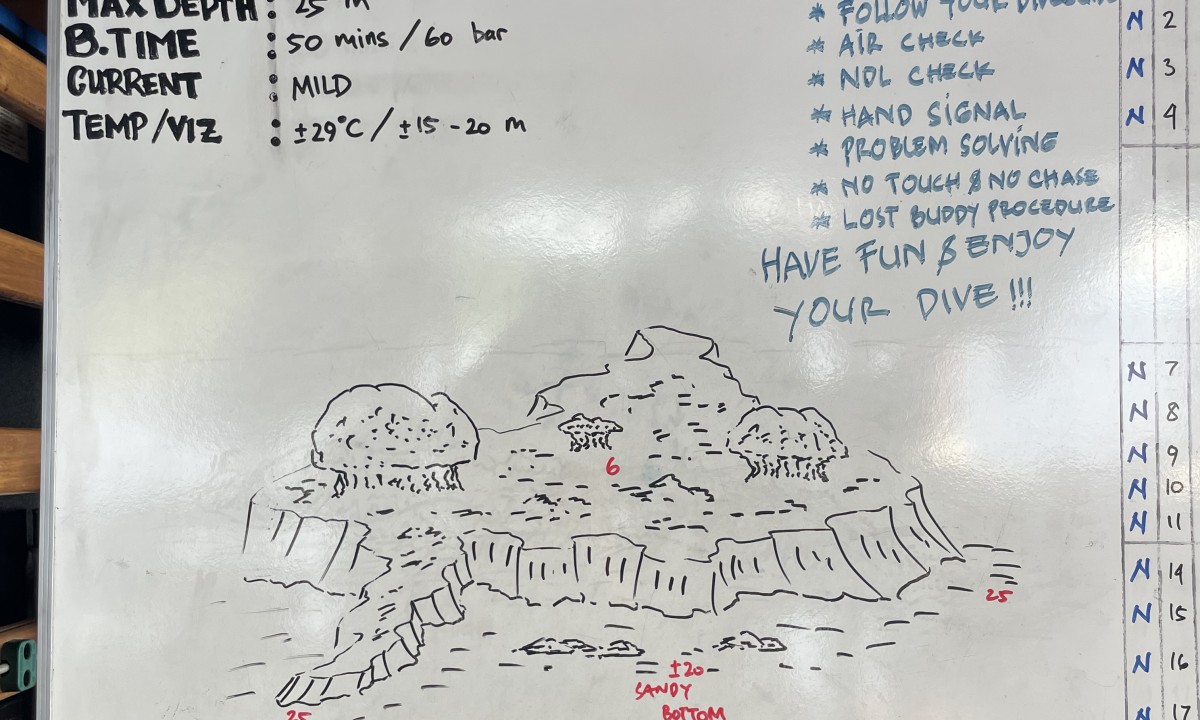 MAX DEPTH : 25 m
B.TIME : 50 mins / 60 bar
CURRENT : MILD
TEMP/VIZ : ±29°C / ±15 - 20 m
* FOLLOW YOUR
* AIR CHECK
* NDL CHECK
* HAND SIGNAL
* PROBLEM SOLVING
* NO TOUCH & NO CHASE
* LOST BUDDY PROCEDURE
HAVE FUN & ENJOY
YOUR DIVE !!!
6
25
±20
SANDY
BOTTOM
25
N 2
N 3
N 4
N 7
N 8
N 9
N 10
N 11
N 14
N 15
N 16
N 17